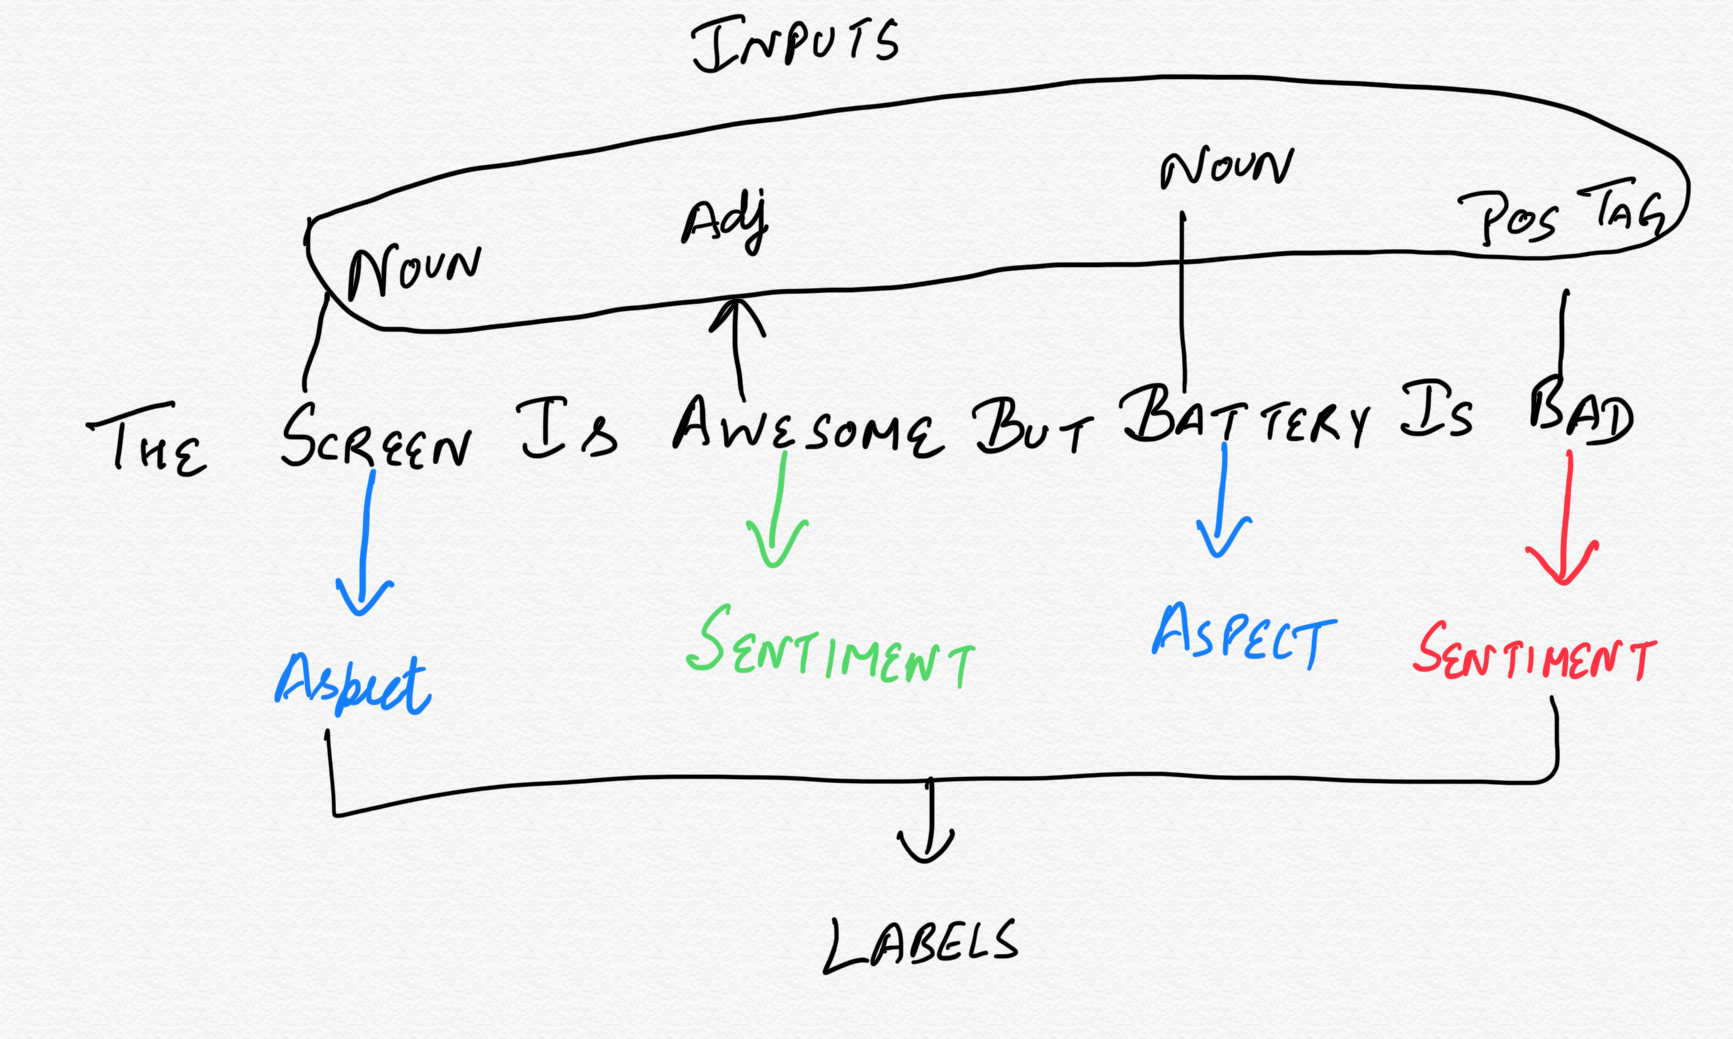 INPUTS
NOUN Adj NOUN POS TAG
THE SCREEN IS AWESOME BUT BATTERY IS BAD
Aspect SENTIMENT ASPECT SENTIMENT
LABELS